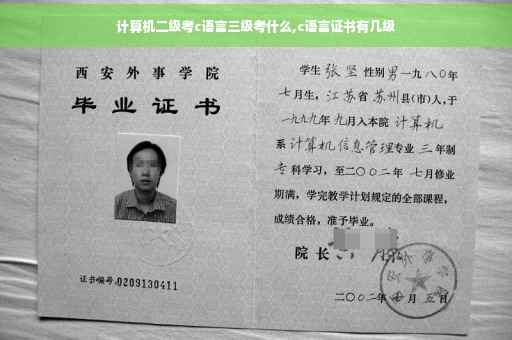 计算机二级考c语言三级考什么,c语言证书有几级
西安外事学院
毕业证书
证书编号:0209130411
学生张坚性别男一九八〇年
七月生,江苏省苏州县(市)人,于
一九九九年九月入本院计算机
系计算机信息管理专业三年制
专科学习,至二〇〇二年七月修业
期满,学完教学计划规定的全部课程,
成绩合格,准予毕业。
院长
二〇〇二年 月五日